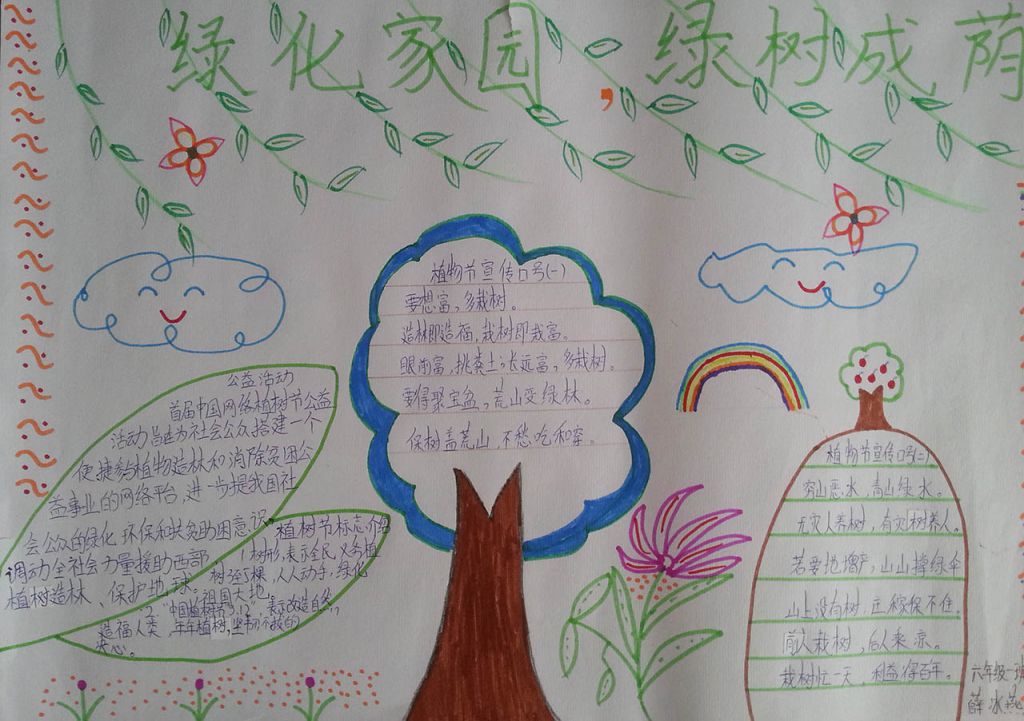 绿化家园,绿树成荫
植物节宣传口号(一)
要想富,多栽树。
造林即造福,栽树即栽富。
眼前富,挑粪土;长远富,多栽树。
要得聚宝盆,荒山变绿林。
保树盖荒山,不愁吃和穿。
公益活动
首届中国网络植树节公益
活动旨在为社会公众搭建一个
便捷参植物造林和消除贫困公
益事业的网络平台,进一步提我国社
会公众的绿化、环保和扶贫助困意识,
调动全社会力量援助西部
植树造林、保护地球。
植树节标志介绍
1树形,表示全民义务植
树3至5棵,人人动手,绿化
祖国大地。
2."中国植树节3.12",表示改造自然,
造福人类,年年植树,坚韧不拔的
决心。
植物节宣传口号(二)
穷山恶水,青山绿水。
无灾人养树,有灾树养人。
若要地增产,山山撑绿伞
山上没有树,庄稼保不住。
前人栽树,后人乘凉。
栽树忙一天,利益得百年。
六年级一班
薛冰燕